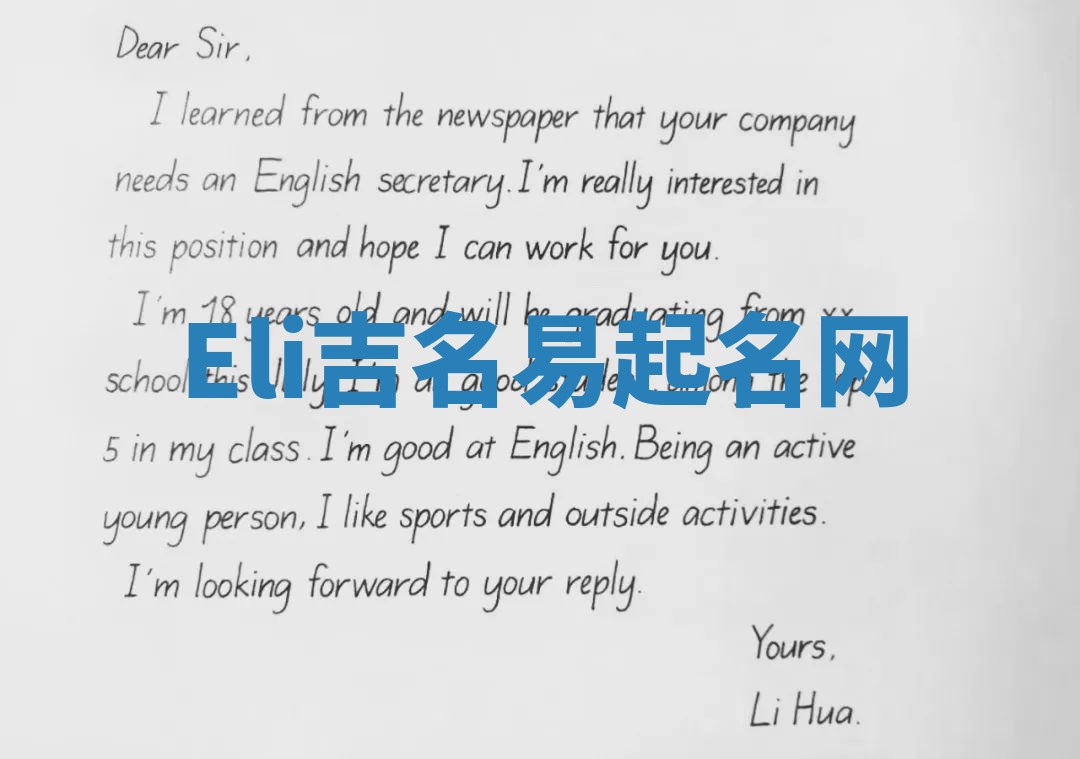 Dear Sir,
I learned from the newspaper that your company
needs an English secretary. I'm really interested in
this position and hope I can work for you.
I'm 18 years old and will be graduating from xx
Eli吉名易起名网
school this July. I'm a good student, among the top
5 in my class. I'm good at English. Being an active
young person, I like sports and outside activities.
I'm looking forward to your reply.
Yours,
Li Hua.